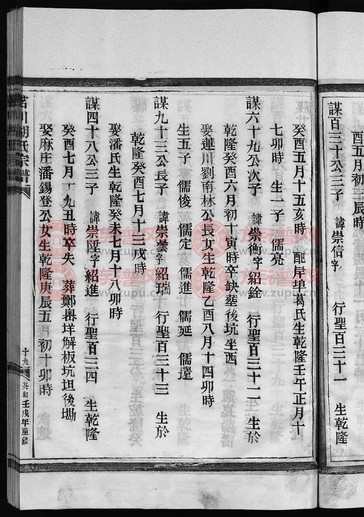 謀百三十公三子　諱崇信字
酉五月初五辰時
癸酉五月十五亥時　配岸阜葛氏生乾隆壬午正月十
七卯時　生一子　儒亮
謀六十九公次子　諱崇衡字紹銓　行聖百三十一　生於
乾隆癸酉六月初十寅時卒缺葬後坑坐西
娶蓮川劉南林公長女生乾隆乙酉八月十四卯時
生五子　儒俊　儒定　儒進　儒延　儒還
謀九十三公長子　諱崇　字紹瑞　行聖百三十三　生於
乾隆癸酉七月十二戌時
娶潘氏生乾隆癸未七月十八卯時
謀四十八公三子　諱崇　字紹進　行聖百三四　生乾隆
癸酉七月十九丑時卒失　葬鄒　垟解板坑坦後塝
娶麻庄潘錫登公女生乾隆庚辰五月初十卯時
胡氏宗譜
十九
壬戌年重修